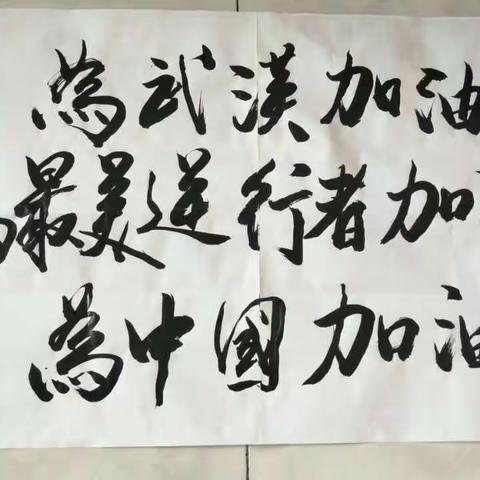 為武漢加油
最美逆行者加
為中國加油